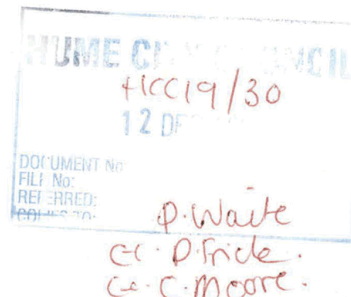 HUME CITY COUNCIL
HCC19/30
12 DE
DOCUMENT No:
FILE No:
REFERRED:
COPIES TO:
P. Waite
cc. D. Fricke.
cc. C. Moore.